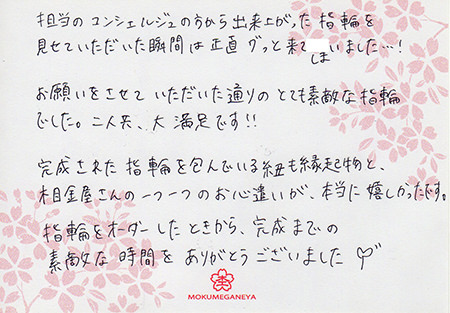 担当のコンシェルジュの方から出来上がった指輪を
見せていただいた瞬間は正直グッと来て
しまいました…!
お願いをさせていただいた通りのとても素敵な指輪
でした。二人共、大満足です!!
完成された指輪を包んでいる紐も縁起物と、
杢目金屋さんの一つ一つのお心遣いが、本当に嬉しかったです。
指輪をオーダーしたときから、完成までの
素敵な時間をありがとうございました
MOKUMEGANEYA